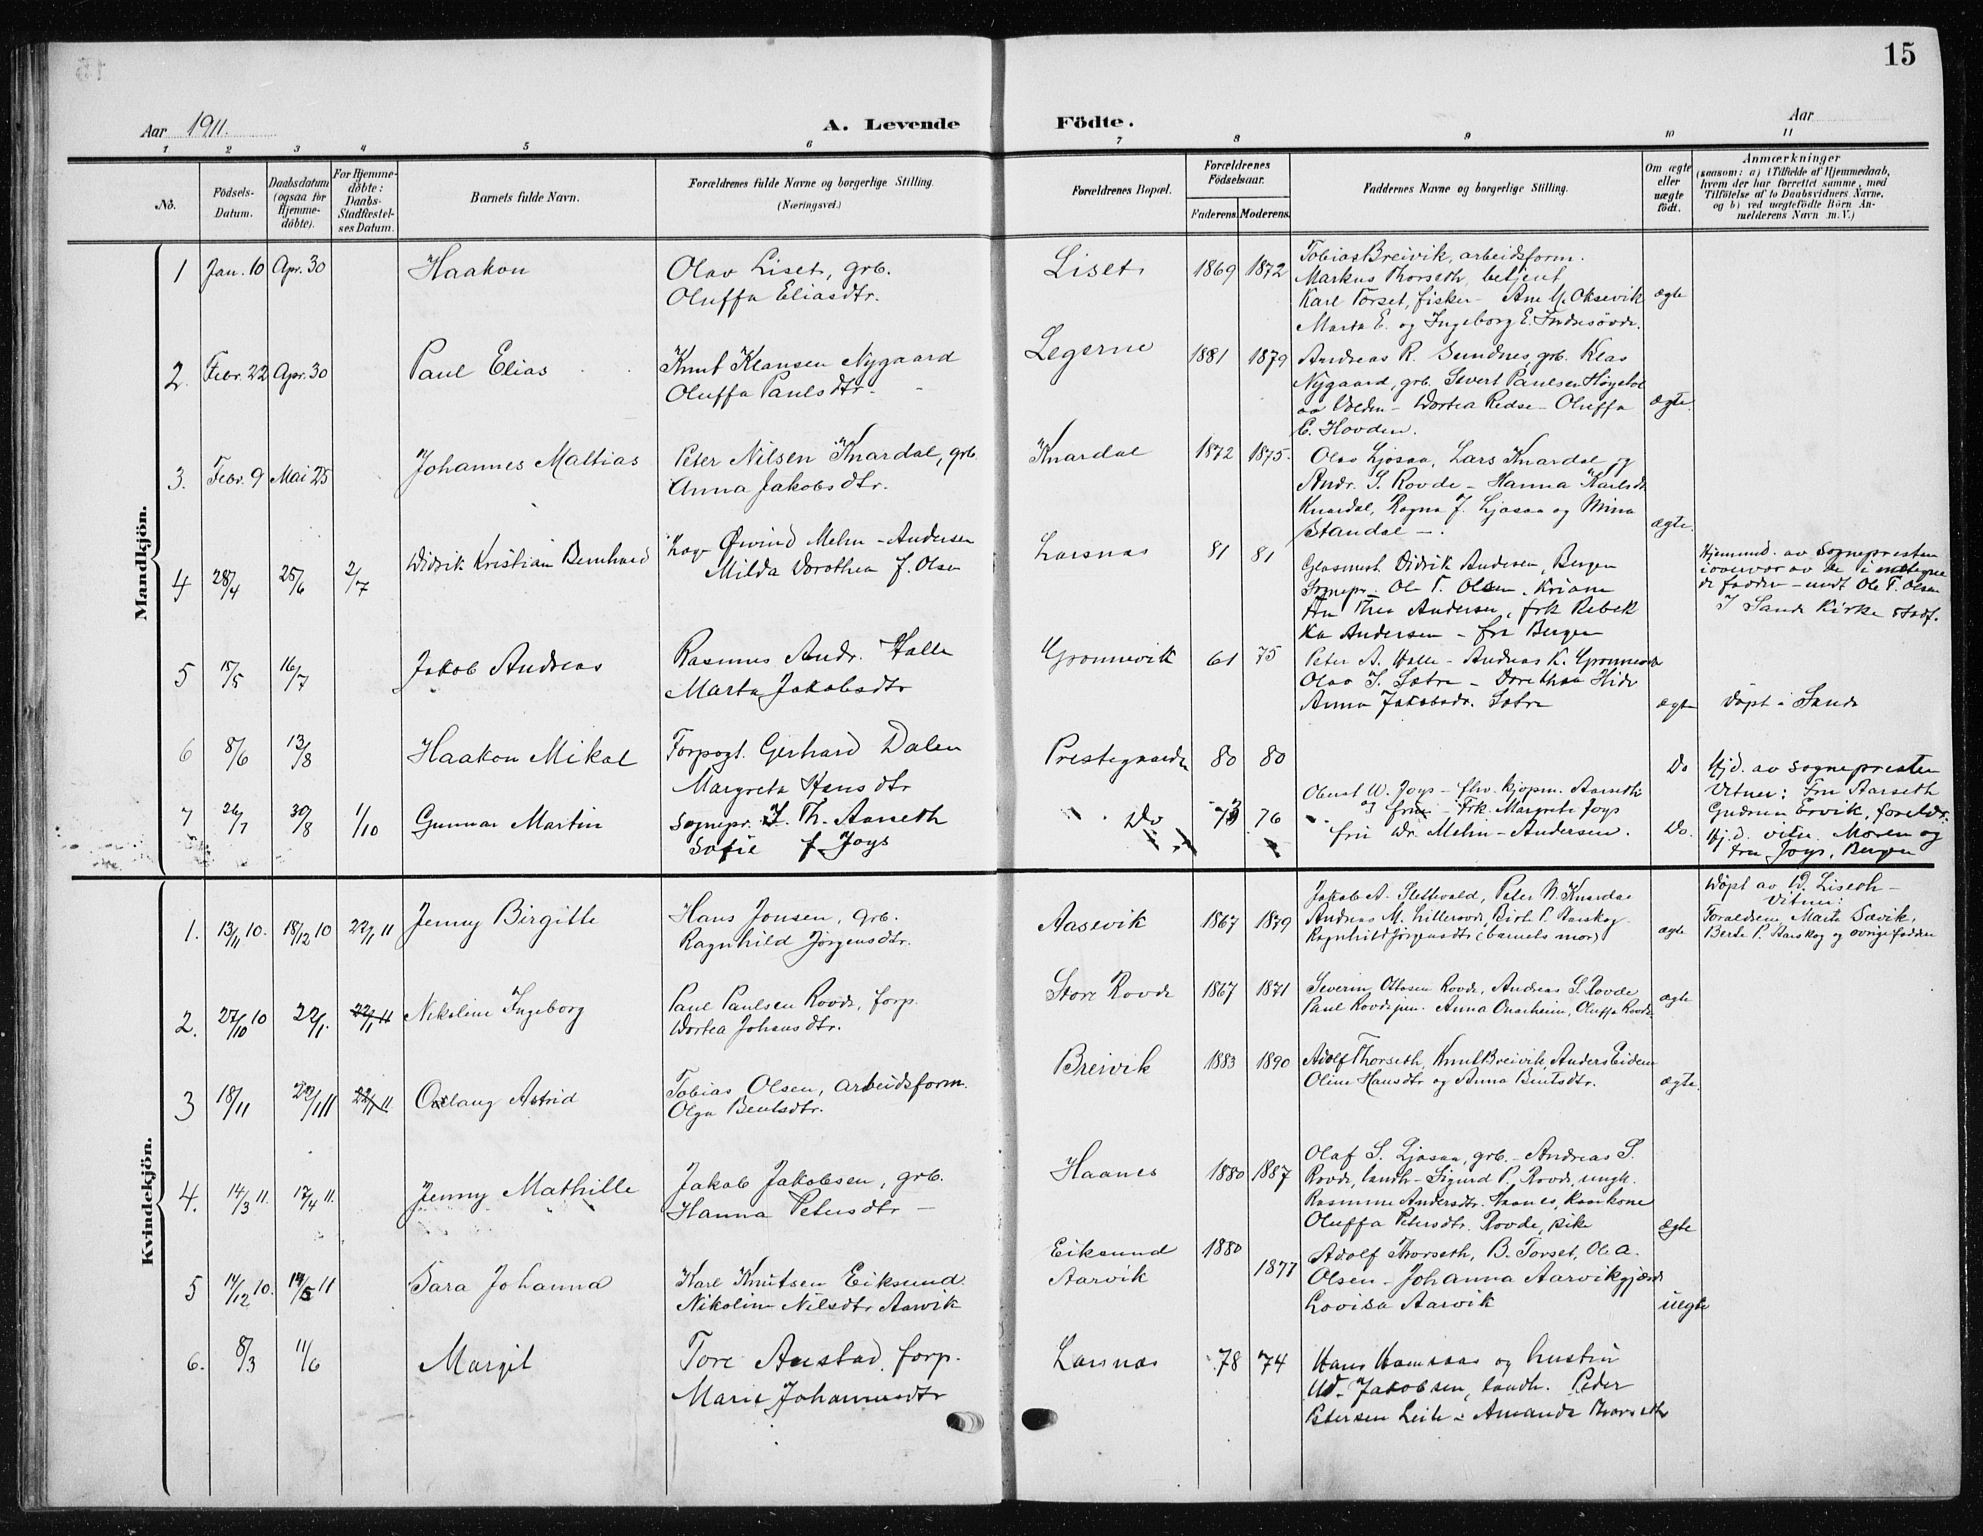 15
Aar 1911.
A. Levende Födte.
Aar
1 2 3 4 5 6 7 8 9 10 11
No.
Födsels-Datum.
Daabsdatum (ogsaa for Hjemmedöbte).
For Hjemmedöbte: Daabs-Stadfestelses Datum.
Barnets fulde Navn.
Forældrenes fulde Navne og borgerlige Stilling.
(Næringsvei.)
Forældrenes Bopæl.
Forældrenes Födselsaar.
Faderens. Moderens.
Faddernes Navne og borgerlige Stilling.
Om ægte eller uægte födt.
Anmærkninger
(saasom: a) i Tilfælde af Hjemmedaab, hvem der har forrettet samme, med Tilföielse af to Daabsvidners Navne, og b) ved uægtefödte Börn Anmelderens Navn m. V.)
Mandkjön.
1 Jan. 10 Apr. 30 Haakon
Olav Liset, grb.
Oluffa Eliasdtr.
Liset 1869 1872
Tobias Breivik, arbeidsform.
Markus Thorseth, betjent
Karl Torset, fisker - Ane M. Oksevik
Marta E. og Ingeborg E.
ægte
2. Febr. 22 Apr. 30 Paul Elias
Knut Klausen Nygaard
Oluffa Paulsdtr.
Legerne 1881 1879
Andreas R. Sundnes, grb. Klas
Nygaard, grb. Sivert Paulsen
Dortea Redse - Oluffa
E. Hovden.
ægte.
3. Febr. 9 Mai 25 Johannes Mattias
Peter Nilsen Knardal, grb.
Anna Jakobsdtr.
Knardal 1872 1875.
Olav Ljosaa, Lars Knardal og
Andr. S. Rovde - Hanna Karlsdt.
Knardal, Ragna J. Ljosaa og Mina
Standal -.
ægte.
4 28/4 25/6 2/7 Didrik Kristian Bernhard
Øivind Mehn - Andersen
Milda Dorothea f. Olsen
Larsnes 81 81
Glasmest. Didrik Andersen, Bergen
Sognepr. Ol. T. Olsen.
Fru Thea Andersen, frk Rebek
ka Andersen - fra Bergen
Hjemmed. av Sognepresten
i overvær av de i
de faddere - undt Ole T. Olsen
I Sande Kirke stadf.
5 15/5 16/7 Jakob Andreas
Rasmus Andr. Halle
Marta Jakobsdtr
Gronnevik 61 75
Peter A. Halle - Andreas K. Gronnevik
Olav I. Sætre - Dorethea Hide
Anna Jakobsdr. Sætre
ægte Døpt i Sande
6 8/6 13/8 Haakon Mikal
Forpagt. Gerhard Dalen
Margreta Hansdtr
Prestegaarden 80 80
Do
Hjd. av sognepresten
Vitner: Fru Aarseth
Gudrun Ervik, foreldr.
7 26/7 30/8 1/10 Gunnar Martin
Sognepr. I. Th. Aarseth
Sofie f. Joys
Do 73 76
Oberst W. Joys - fhv. kjøpm. Aarseth
og frue - Frk Margrete Joys
fru Dr. Mehn-Andersen.
Do.
Hj.d. vitn. Moren og
fru Joys, Bergen
Kvindekjön.
1. 13/11 10. 18/12 10 22/1 11 Jenny Birgitte
Hans Jonsen, grb.
Ragnhild Jørgensdtr.
Aasevik 1867 1879
Jakob A. Slettvold, Peter N. Knardal
Andreas M. Lillerovde Birte P. Aarskog
Ragnhild Jørgensdtr (barnets mor)
ægte
Døpt av D. Liseth -
Vitner:
Foreldrene, Marte Sævik,
Berte P. Aarskog og øvrige faddere
2. 27/10 10 22/1. 22/1 11 Nikoline Ingeborg
Paul Paulsen Rovde, forp.
Dortea Johansdtr.
Store Rovde 1867 1871
Severin Ottosen Rovde, Andreas S. Rovde
Paul Rovde jun. Anna Onarheim, Oluffa Rovde
ægte
3 18/11 22/1 11 22/1 11 Oslaug Astrid
Tobias Olsen, arbeidsform.
Olga Bentsdtr.
Breivik 1883 1890
Adolf Thorseth, Knut Breivik, Anders Eidem
Oline Hansdtr og Anna Bentsdtr.
ægte.
4. 14/3 11. 17/4 11. Jenny Mathille
Jakob Jakobsen, grb.
Hanna Petersdtr -
Haanes 1880 1887
Olaf S. Ljosaa, grb. - Andreas S.
Rovde, landh - Sigurd P. Rovde, ungk.
Rasmine Andersdtr. Haanes, kaarkone
Oluffa Petersdtr. Rovde, pike
ægte
5 14/12 10. 14/5 11 Sara Johanna
Karl Knutsen Eiksund
Nikoline Nilsdtr Aarvik
Eiksund 1880
Aarvik 1877
Adolf Thorseth, B. Torset, Ole A.
Olsen - Johanna Aarvikgjærde
Lovisa Aarvik
uegte
6. 8/3 11/6 Margit
Tore Austad, forp.
Marie Johannesdtr
Larsnes 78 74
Hans og hustru
Ud. Jakobsen, landh. Peder
Petersen Leite - Amanda Thorseth